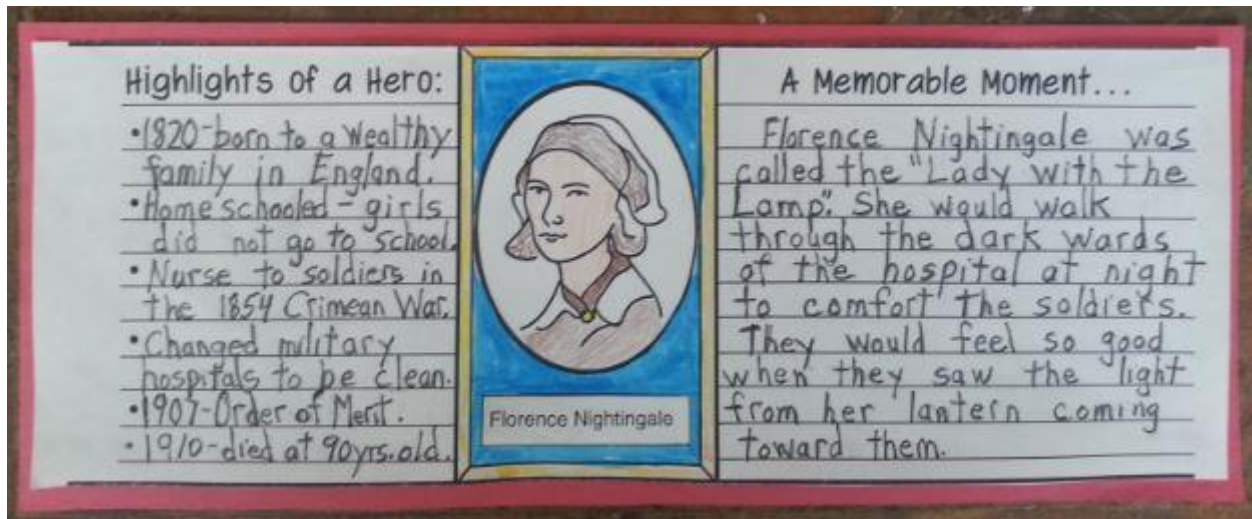 Highlights of a Hero:
•1820-born to a wealthy
family in England.
•Home schooled - girls
did not go to school.
• Nurse to soldiers in
the 1854 Crimean War.
•Changed military
hospitals to be clean.
•1907-Order of Merit.
•1910-died at 90yrs.old.
Florence Nightingale
A Memorable Moment...
Florence Nightingale was
called the "Lady with the
Lamp". She would walk
through the dark wards
of the hospital at night
to comfort the soldiers.
They would feel so good
when they saw the light
from her lantern coming
toward them.